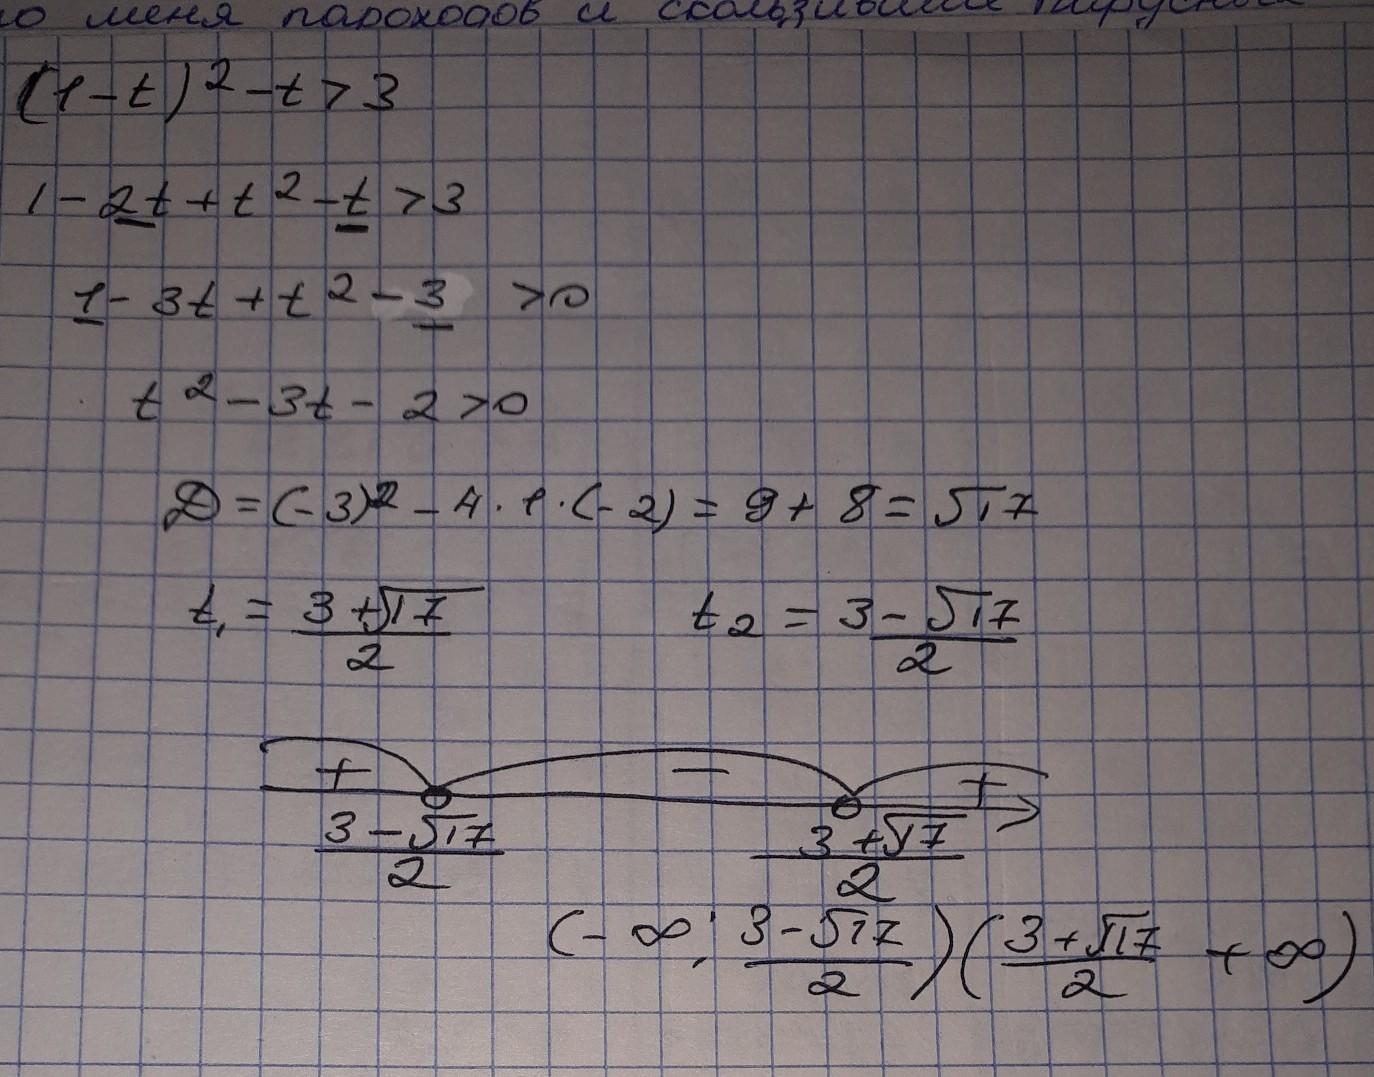 по меня пароходов и скользивших парусных
(1-t)² - t > 3
1 - 2t + t² - t > 3
1 - 3t + t² - 3 > 0
t² - 3t - 2 > 0
D = (-3)² - 4 · 1 · (-2) = 9 + 8 = √17
t₁ = (3 + √17)/2 t₂ = (3 - √17)/2
+ − +
(3 - √17)/2 (3 + √17)/2
(-∞; (3 - √17)/2)((3 + √17)/2 +∞)